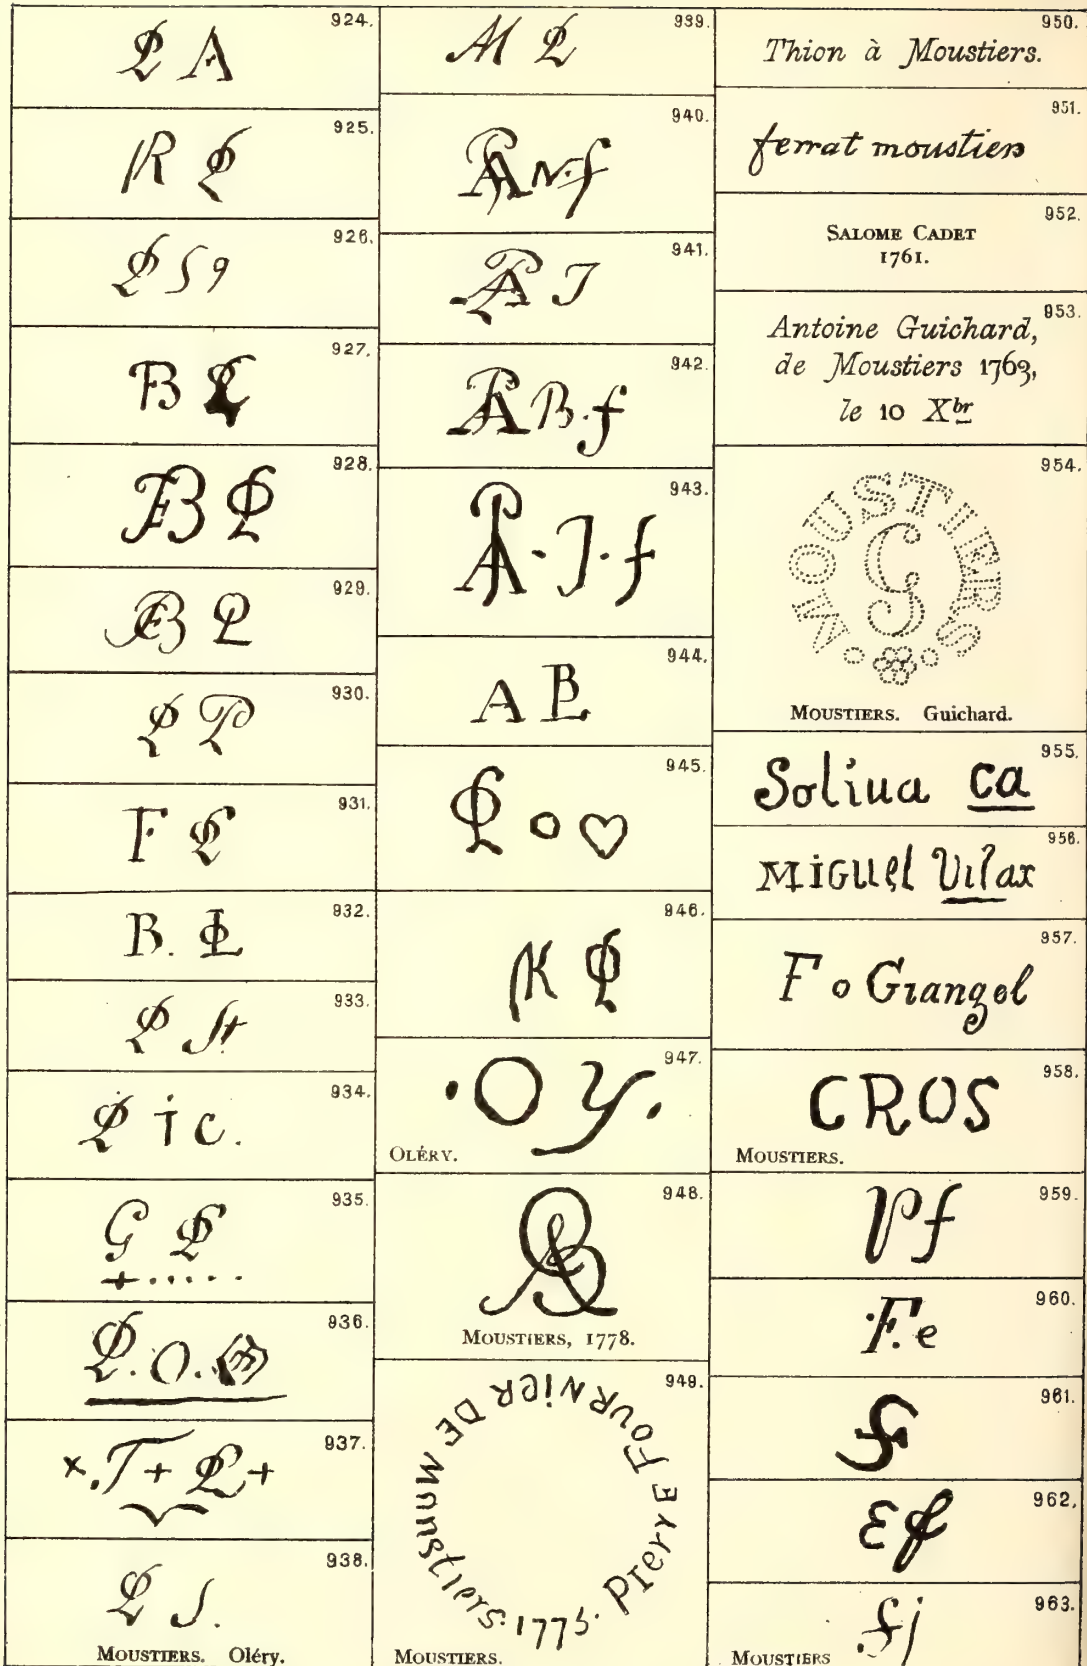 924.
A
925.
R
926.
S 9
927.
B
928.
929.
930.
P
931.
F
932.
B.
933.
St.
934.
i c.
935.
G
936.
. O.
937.
×. T + +
938.
S.
MOUSTIERS. Oléry.
939.
M
940.
N. f
941.
J
942.
B. f
943.
· J · f
944.
A
945.
o
946.
K
947.
· O y.
OLÉRY.
948.
MOUSTIERS, 1778.
949.
PIerrE FOURNiER DE Mouustiers. 1775.
MOUSTIERS.
950.
Thion à Moustiers.
951.
ferrat moustiers
952.
SALOME CADET
1761.
953.
Antoine Guichard,
de Moustiers 1763,
le 10 Xbr
954.
MOUSTIERS
G
MOUSTIERS. Guichard.
955.
Soliua ca
956.
MiGuel Vilax
957.
F o Grangel
958.
CROS
MOUSTIERS.
959.
Pf
960.
·F. e
961.
962.
Ef
963.
fj
MOUSTIERS